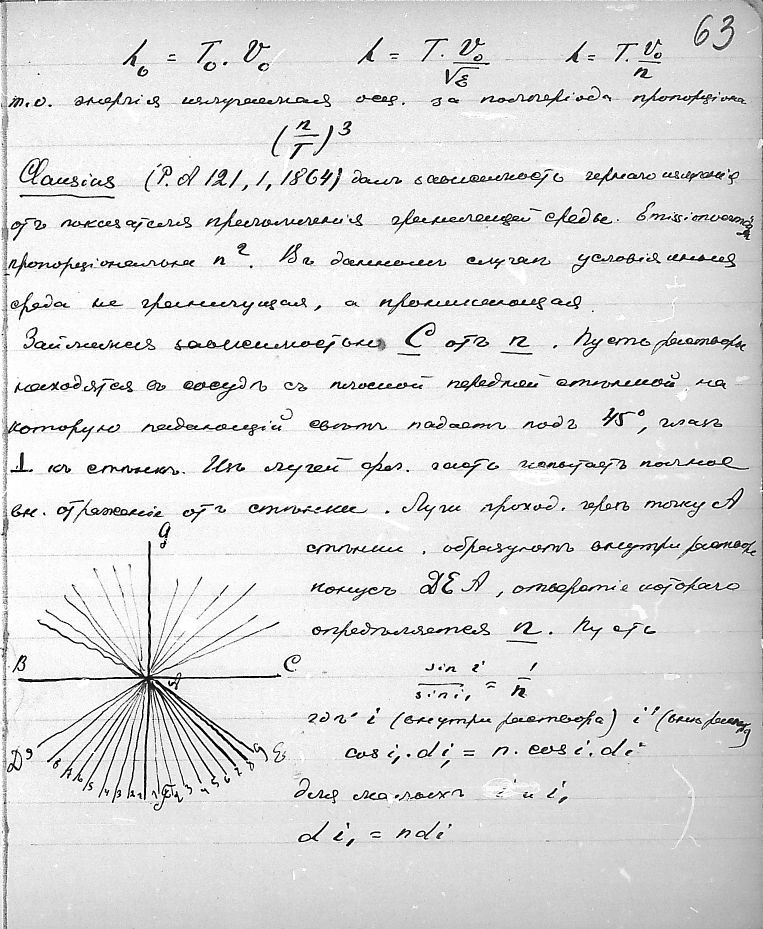 63
h₀ = T₀. V₀   h = T. V₀/√ε   h = T. V₀/n
т.о. энергія излучаемая осц. за полперіода пропорціона
(n/T)³
Clausius (P.A 121, 1, 1864) далъ зависимость чернаго излученія
отъ показателя преломленія граничащей среды.
пропорціональна n². Въ данномъ случаѣ условія иныя
среда не граничущая, а проникающая.
Займемся зависимостью C отъ n. Пусть растворы
находятся въ сосудѣ съ плоской передней стѣнкой на
которую падающій свѣтъ падаетъ подъ 45°, глазъ
⊥ къ стѣнкѣ. Изъ лучей фл. часть испытаетъ полное
вн. отраженіе отъ стѣнки. Лучи проход. черезъ точку A
стѣнки, образуютъ внутри раствора
конусъ DEA, отверстіе котораго
опредѣляется n. Пусть
sin i / sin i₁ = 1/n
гдѣ i (внутри раствора) i' (внѣ раствора)
cos i₁. di₁ = n. cos i. di
для малыхъ i и i₁
d i₁ = n di
g
B A C
D 9 8 7 6 5 4 3 2 1 1 2 3 4 5 6 7 8 9 E